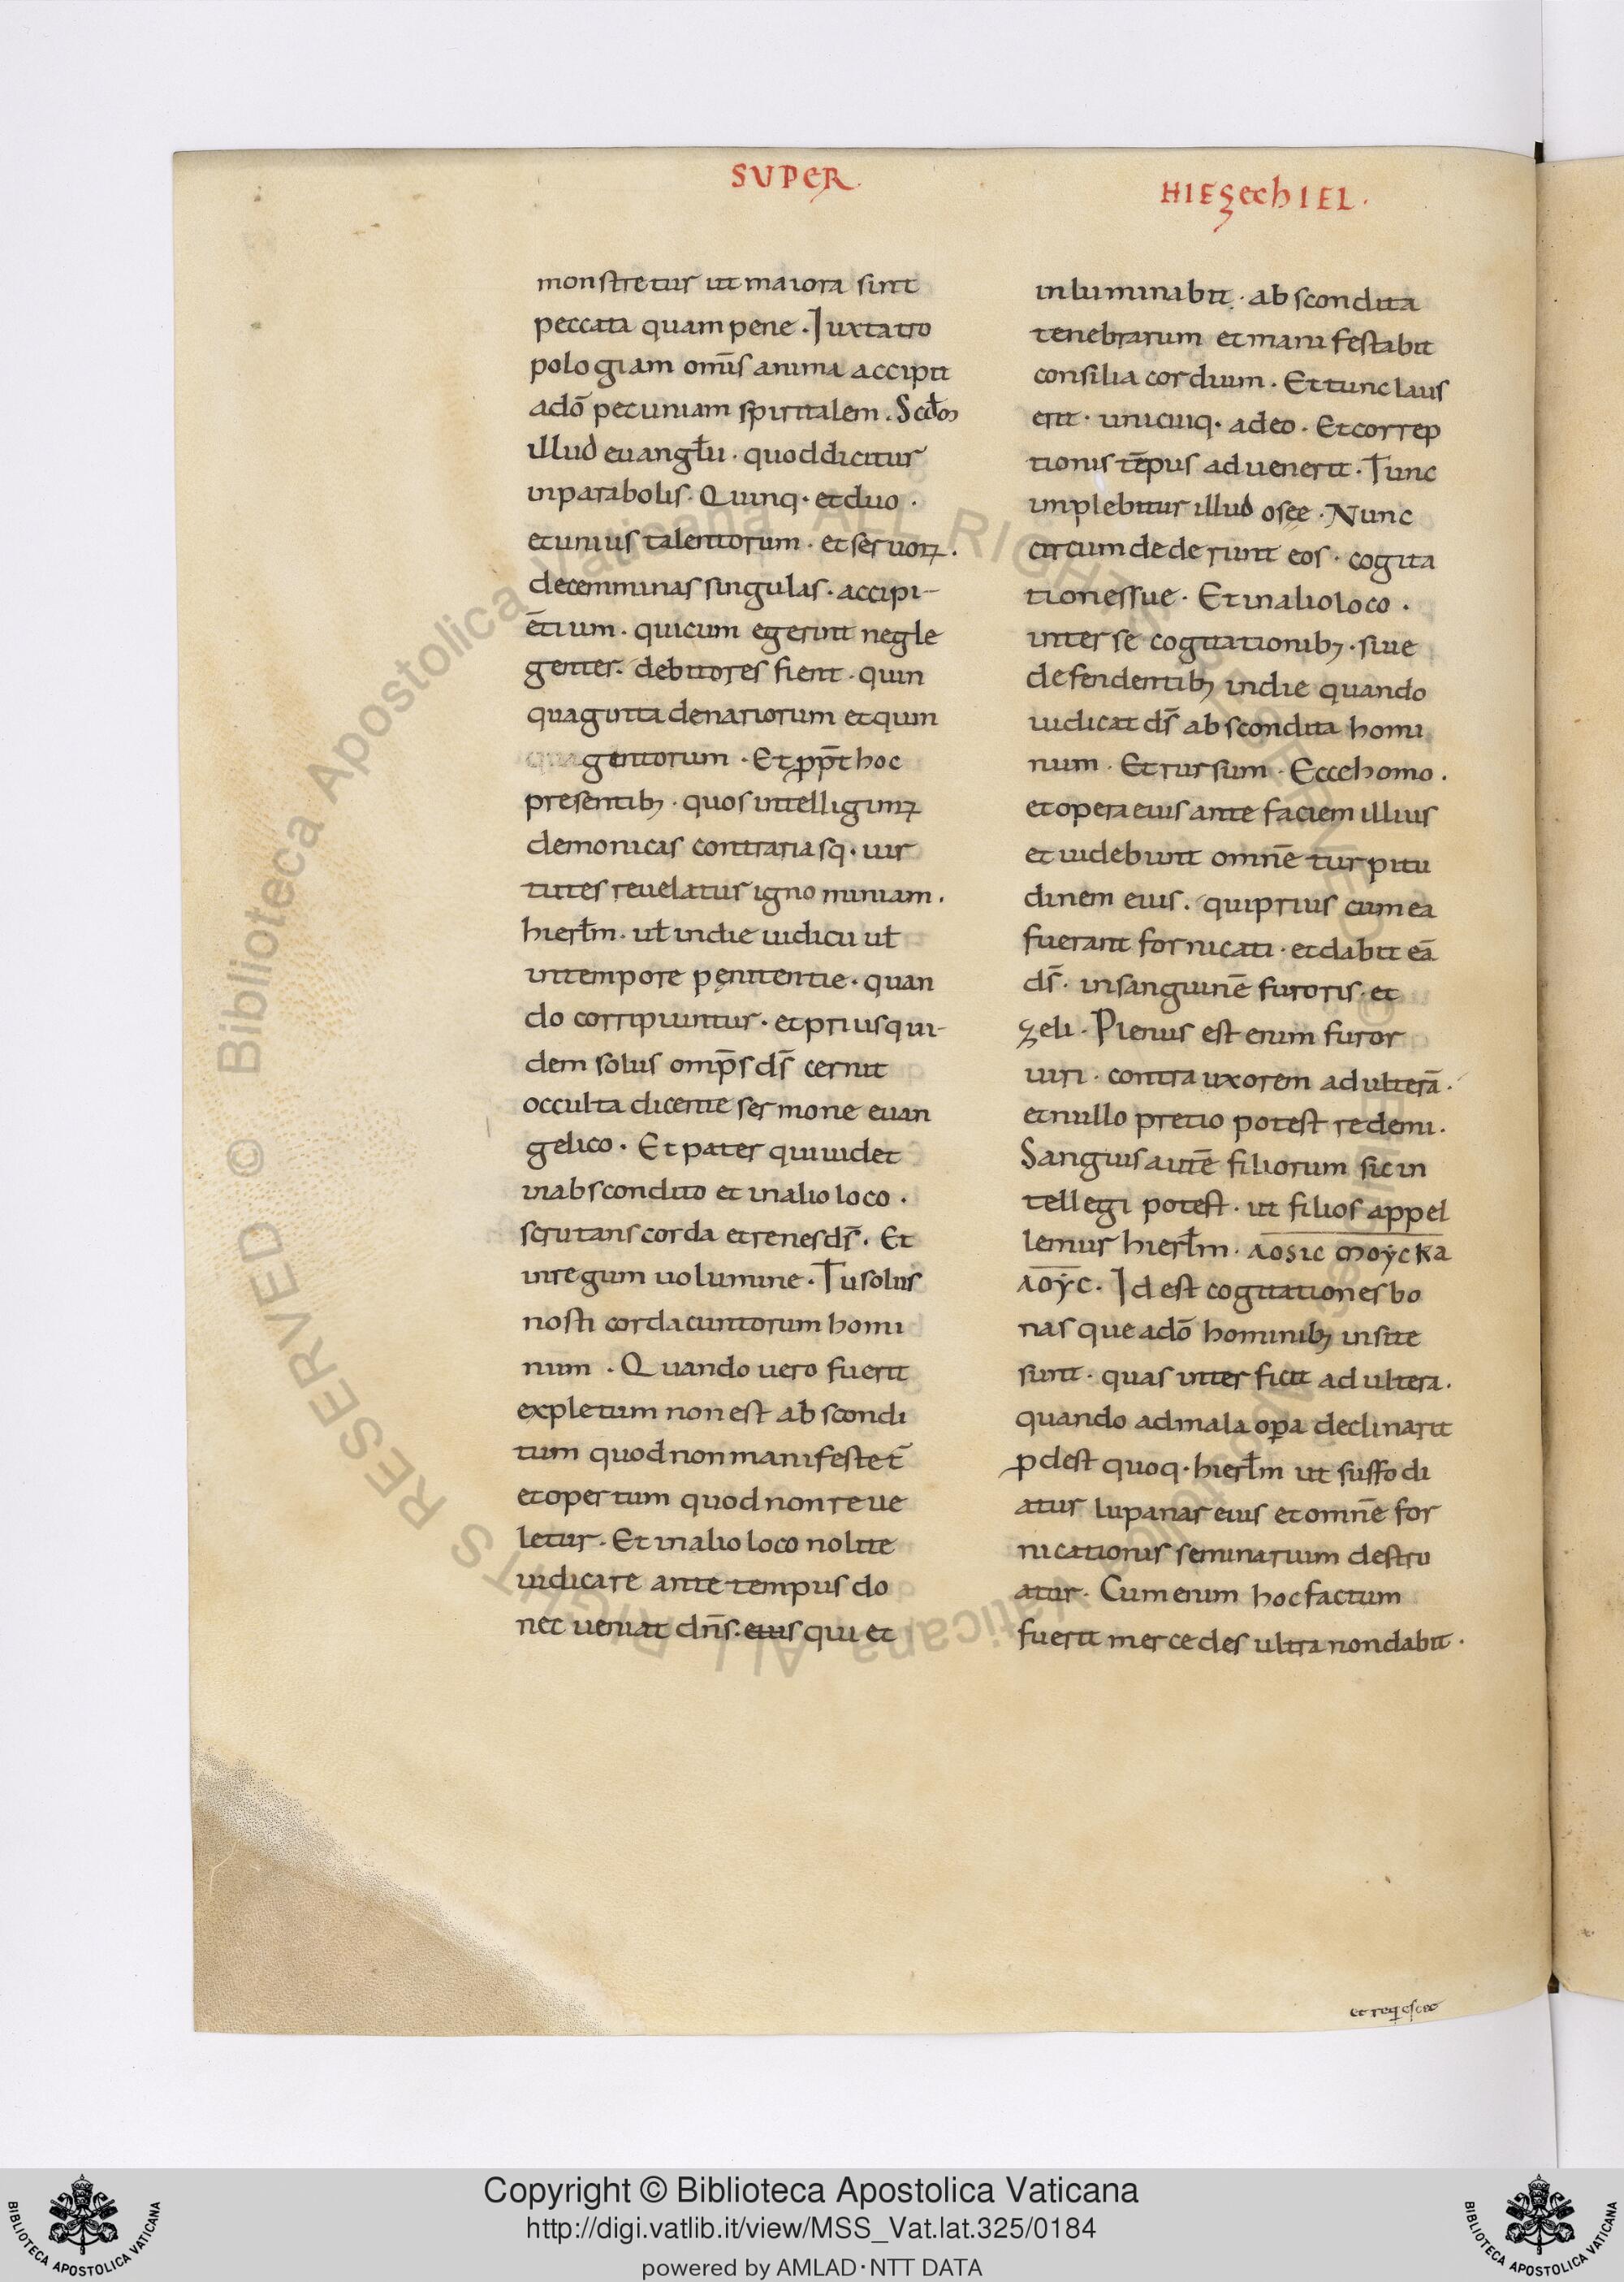 SUPER
HIEZECHIEL.
monstretur ut maiora sint
peccata quam pene. Iuxta tro
pologiam om̅s anima accipit
ad do̅ pecuniam spiritalem. Scd̅m
illud euangl̅ii. quod dicitur
in parabolis. Quinq. et duo.
et unius talentorum. et seruoꝝ.
decem minas singulas. accipi-
e̅tium. quicum egerint negle
genter. debitores fient. quin
quaginta denariorum et quin
gentorum. Et ꝓpt̅ hoc
presentibꝫ. quos intelligimꝰ
demonicas contrariasq. uir
tutes reuelatur ignominiam.
hierl̅m. ul̅ in die iudicii ul̅
in tempore pęnitentie. quan
do corripiuntur. et prius qui-
dem solus omp̅s ds̅ cernit
occulta dicente sermone euan
gelico. Et pater qui uidet
in abscondito et in alio loco.
scrutans corda et renes ds̅. Et
in regum uolumine. Tu solus
nosti corda cuntorum homi
num. Quando uero fuerit
expletum non est abscondi
tum quod non manifestet̅
et opertum quod non reue
letur. Et in alio loco nolite
iudicare ante tempus do
nec ueniat dn̅s. eius qui et
inluminabit. abscondita
tenebrarum et manifestabit
consilia cordium. Et tunc laus
erit. unicuiq. a deo. Et correp
tionis te̅pus aduenerit. Tunc
implebitur illud osęe. Nunc
circumdederunt eos. cogita
tiones sue. Et in alio loco.
inter se cogitationibꝫ. siue
defendentibꝫ in die quando
iudicat ds̅ abscondita homi
num. Et rursum. Ecce homo.
et opera eius ante faciem illius
et uidebunt omne̅ turpitu
dinem eius. qui prius cum ea
fuerant fornicati. et dabit ea̅
ds̅. in sanguine̅ furoris. et
zeli. Plenus est enim furor
uiri. contra uxorem adultera̅.
et nullo pretio potest redemi.
Sanguis aute̅ filiorum sic in
tellegi potest. ut filios appel
lemus hierl̅m. ΛΟSIC ΜΟΥC ΚΑ
ΛΟΥC. Id est cogitationes bo
nas que a do̅ hominibꝫ insite
sunt. quas interficit adultera.
quando ad mala oꝑa declinarit
ꝓdest quoq. hierl̅m ut suffodi
atur lupanar eius et omne̅ for
nicationis seminarium destru
atur. Cum enim hoc factum
fuerit mercedes ultra non dabit.
et req̇escet
Copyright © Biblioteca Apostolica Vaticana
http://digi.vatlib.it/view/MSS_Vat.lat.325/0184
powered by AMLAD·NTT DATA